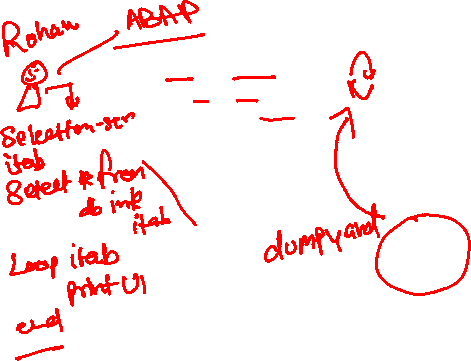 Rohan
ABAP
Selection-scr
itab
Select * from
db into
itab
Loop itab
print UI
end
dumpyard